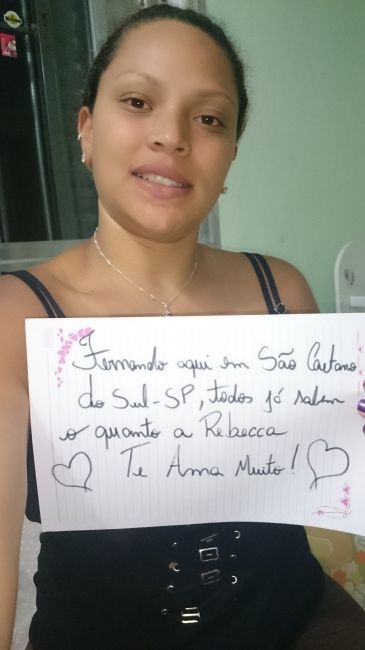 Fernando aqui em São Caetano
do Sul-SP, todos já sabem
o quanto a Rebecca
Te Ama Muito!